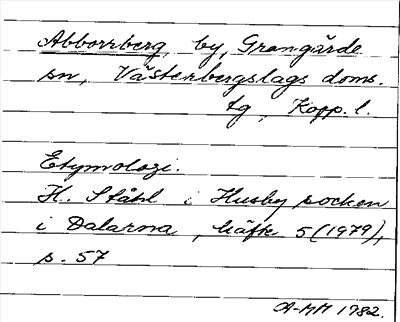 Abborrberg, by, Grangärde
sn, Västerbergslags doms.
tg, Kopp. l.
Etymologi.
H. Ståhl i Husby socken
i Dalarna, häfte 5 (1979),
s. 57
A-MM 1982.